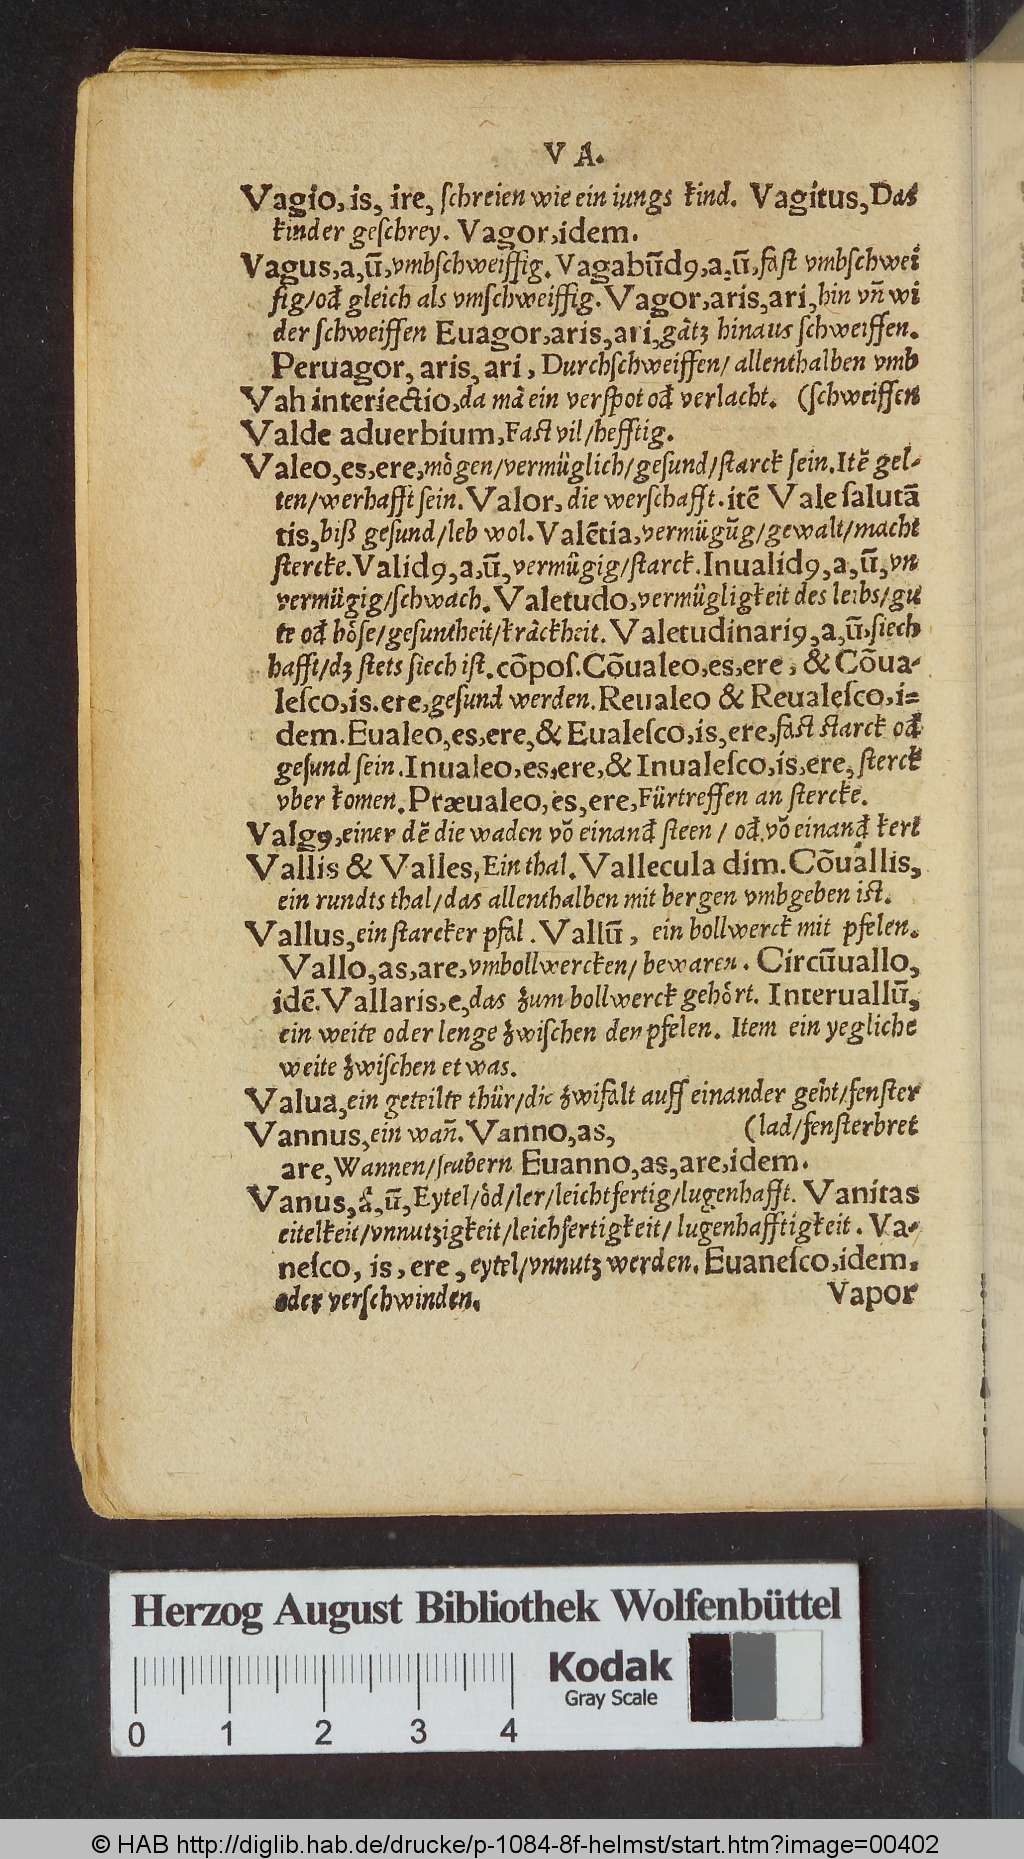 V A.
Vagio, is, ire, schreien wie ein iungs kind. Vagitus, Das
kinder geschrey. Vagor, idem.
Vagus, a, ũ, vmbschweiffig. Vagabũdꝯ, a, ũ, fast vmbschwei
fig/ ođ gleich als vmschweiffig. Vagor, aris, ari, hin vñ wi
der schweiffen Euagor, aris, ari, gãtz hinaus schweiffen.
Peruagor, aris, ari, Durchschweiffen/ allenthalben vmb
Vah interiectio, da mã ein verspot ođ verlacht. (schweiffen
Valde aduerbium, Fast vil/ hefftig.
Valeo, es, ere, mögen/ vermüglich/ gesund/ starck sein. Itẽ gel-
ten/ werhafft sein. Valor, die werschafft. itẽ Vale salutã
tis, biß gesund/ leb wol. Valẽtia, vermügũg/ gewalt/ macht
stercke. Validꝯ, a, ũ, vermügig/ starck. Inualidꝯ, a, ũ, vn
vermügig/ schwach. Valetudo, vermügligkeit des leibs/ gu
te ođ böse/ gesuntheit/ krãckheit. Valetudinariꝯ, a, ũ, siech
hafft/ dz stets siech ist. cõpos. Cõualeo, es, ere, & Cõua-
lesco, is. ere, gesund werden. Reualeo & Reualesco, i=
dem. Eualeo, es, ere, & Eualesco, is, ere, fast starck ođ
gesund sein. Inualeo, es, ere, & Inualesco, is, ere, sterck
vber komen. Præualeo, es, ere, Fürtreffen an stercke.
Valgꝯ, einer dẽ die waden võ einanđ steen/ ođ võ einanđ kert
Vallis & Valles, Ein thal. Vallecula dim. Cõuallis,
ein rundts thal/ das allenthalben mit bergen vmbgeben ist.
Vallus, ein starcker pfal. Vallũ, ein bollwerck mit pfelen.
Vallo, as, are, vmbollwercken/ bewaren. Circũuallo,
idẽ. Vallaris, e, das zum bollwerck gehört. Interuallũ,
ein weite oder lenge zwischen den pfelen. Item ein yegliche
weite zwischen etwas.
Valua, ein geteilte thür/ die zwifalt auff einander geht/ fenster
Vannus, ein wañ. Vanno, as, (lad/ fensterbret
are, Wannen/ seubern Euanno, as, are, idem.
Vanus, a, ũ, Eytel/ öd/ ler/ leichtfertig/ lugenhafft. Vanitas
eitelkeit/ vnnutzigkeit/ leichfertigkeit/ lugenhafftigkeit. Va-
nesco, is, ere, eytel/ vnnutz werden. Euanesco, idem,
oder verschwinden.
Vapor
Herzog August Bibliothek Wolfenbüttel
Kodak
Gray Scale
0 1 2 3 4
© HAB http://diglib.hab.de/drucke/p-1084-8f-helmst/start.htm?image=00402